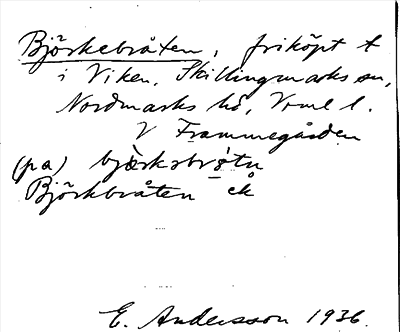 Björkebråten, friköpt t
i Viken, Skillingmarks sn,
Nordmarks hd, Vrml l.
V Frammegården
(pa) bjørksbrǫ́tn
Björkbråten ek
E. Andersson 1936.